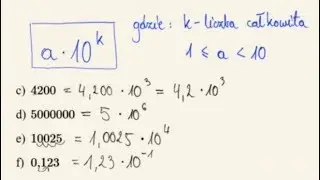 a · 10^k gdzie: k - liczba całkowita
1 ⩽ a < 10
c) 4200 = 4,200 · 10^3 = 4,2 · 10^3
d) 5000000 = 5 · 10^6
e) 10025 = 1,0025 · 10^4
f) 0,123 = 1,23 · 10^-1